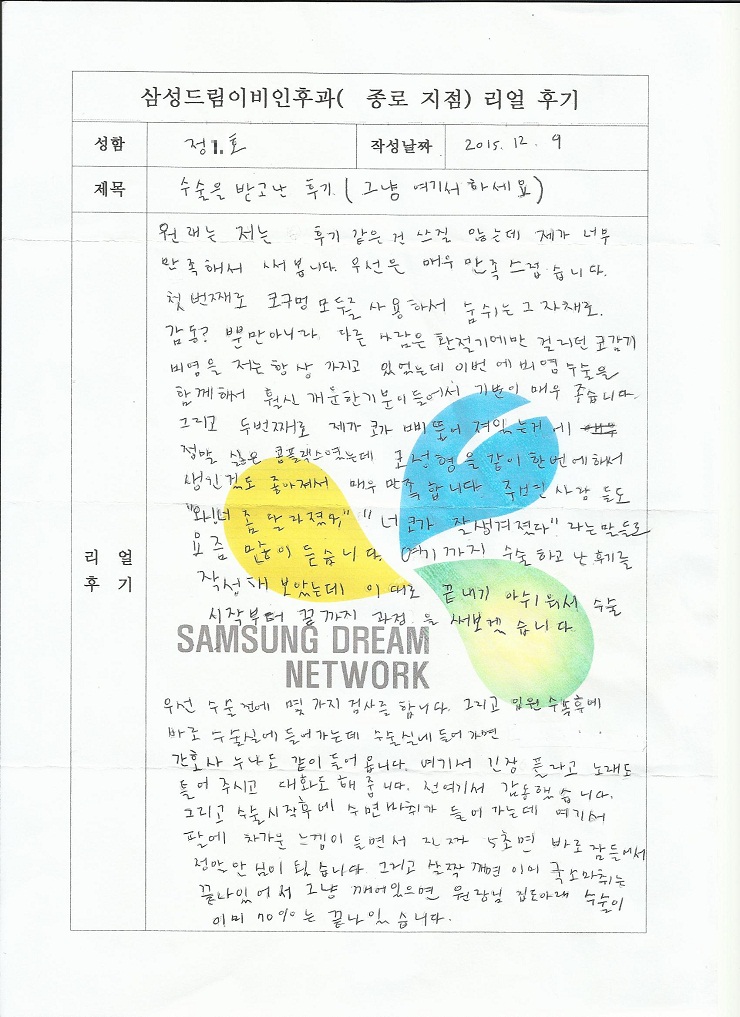 삼성드림이비인후과( 종로 지점) 리얼 후기
성함 정1.호 작성날짜 2015. 12. 9
제목 수술을 받고난 후기 (그냥 여기서 하세요)
리 얼
후 기
원래는 저는 후기 같은 건 쓰질 않는데 제가 너무
만족해서 써 봅니다. 우선은 매우 만족스럽습니다.
첫번째로 코구멍 모두를 사용하서 숨쉬는 그 자체로.
감동? 뿐만아니라. 다른 사람은 환절기에만 걸리던 코감기
비염을 저는 항상 가지고 있었는데 이번에 비염수술을
함께해서 훨신 개운한기분이들어서 기분이 매우 좋습니다.
그리고 두번째로 제가 코가 삐뚤어 져있는거에
정말 싫은 콤플렉스였는데 코성형을 같이 한번에해서
생긴것도 좋아져서 매우 만족합니다. 주변 사람들도
"와! 너 좀 달라졌다," "너 코가 잘생겨졌다" 라는말들로
요즘 많이 듣습니다. 여기까지 수술하고 난 후기를
작성해 보았는데 이대로 끝내기 아쉬워서 수술
시작부터 끝까지 과정을 써보겠습니다.
SAMSUNG DREAM
NETWORK
우선 수술전에 몇 가지 검사를 합니다. 그리고 입원 수속후에
바로 수술실에 들어가는데 수술실에 들어가면
간호사 누나도 같이 들어옵니다. 여기서 긴장 풀라고 노래도
틀어 주시고 대화도 해 줍니다. 전여기서 감동했습니다.
그리고 수술시작후에 수면마취가 들어가는데 여기서
팔에 차가운 느낌이 들면서 진짜 5초면 바로 잠들어서
정말안심이 됬습니다. 그리고 살짝 깨면 이미 국소마취는
끝나있어서 그냥 깨어있으면 원장님 집도아래 수술이
이미 70%는 끝나있습니다.